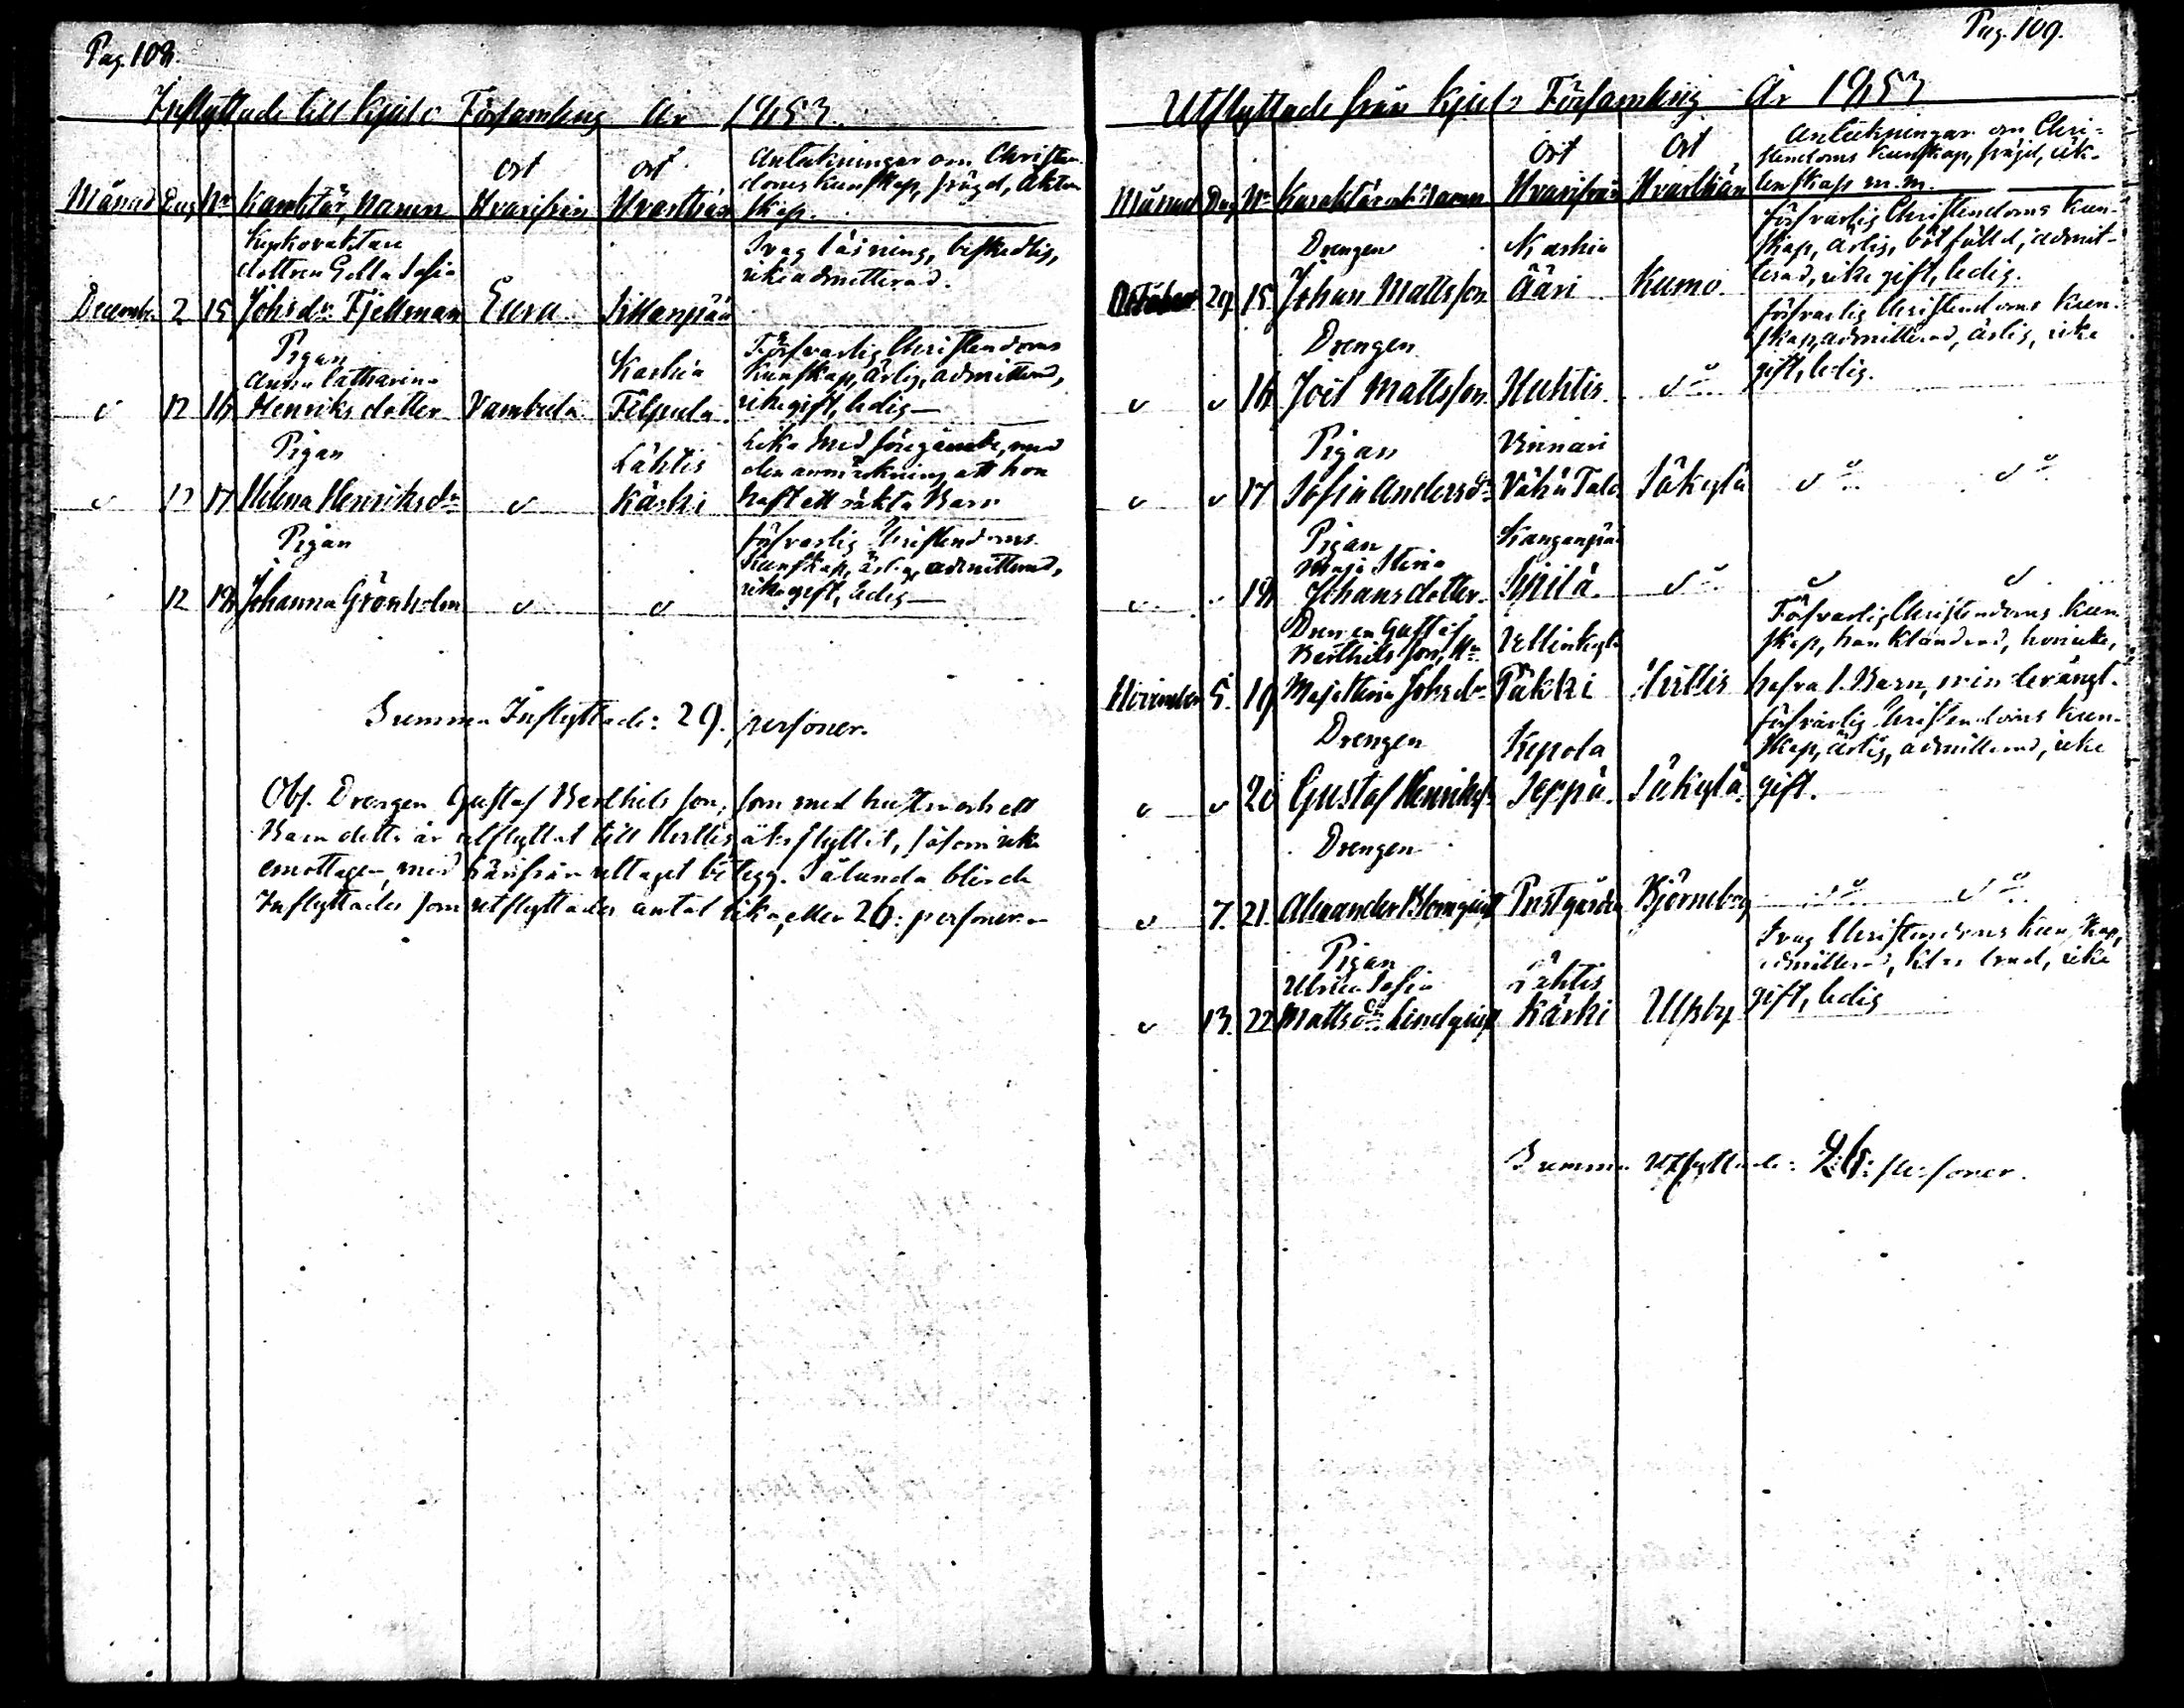 Pag. 108.
Inflyttade till Kjulo Församling År 1853.
Månad Dag No Karaktär, Namn
ort Hvarifrån
ort Hvarthän
Anteckningar om Christen-
doms kunskap, frägd, äkten
skap.
Kyrkovaktare
dottren Gella Sofia
December 2 15 Johsdr Fjellman Eura Sillanpää
Svag läsning, beskedlig,
icke admitterad.
Pigan
Anna Catharina
v 12 16 Henriksdotter Vambula
Karhia
Filpula
Försvarlig Christendoms
kunskap, ärlig, admitterad,
icke gift, ledig
Pigan
v 12 17 Helena Henriksdr v
Lähtis
Kärki
Lika med föregående, med
den anmärkning att hon
haft ett oäkta Barn
Pigan
12 18 Johanna Grönholm v v
försvarlig Christendoms
kunskap, ärlig, admitterad,
icke gift, ledig
Summa Inflyttade: 29. personer.
Obs. Drengen Gustaf Berthilsson, som med hustru och ett
Barn detta år utflyttat till Herttis återflyttat, såsom icke
emottagen, med härifrån uttaget betygg. Sålunda blir de
Inflyttades som utflyttades antal lika, eller 26: personer.
Pag. 109.
Utflyttade från Kjulo Församling År 1853
Månad Dag No Karaktär och Namn
Ort Hvarifrån
Ort Hvarthän
Anteckningar om Chri-
stendoms kunskap, fräjd, äk-
tenskap m.m.
Drengen
October 29. 15. Johan Mattsson
Karhia
Ääri
Kumo.
försvarlig Christendoms kun-
skap, ärlig, admit-
terad, icke gift, ledig.
Drengen
v v 16 Joel Mattsson Huhtis do
försvarlig Christendoms kun-
skap, admitterad, ärlig, icke
gift, ledig.
Pigan
v v 17 Sofia Andersdr
Vinnari
Vähä Talo
Säkylä do do
Pigan
Maja Stina
v 18 Johansdotter
Kanganpää
Spilä do v v
Drengen Gustaf
Berthilsson, Hu
November 5. 19 Maja Stina Johsdr
Vellinkylä
Päkki
Hertis
Försvarlig Christendoms kun-
skap, han klandrad, hon icke,
hafva 1. Barn,
Drengen
v v 20 Gustaf Henrikss
Kepola
Seppä. Säkylä
försvarlig Christendoms kun-
skap, ärlig, admitterad, icke
gift.
Drengen
v 7. 21. Alexander Blomqvist Prstgården Björneborg do do
Pigan
Ulrica Sofia
v 13. 22 Mattsdr Lindqvist
Lähtis
Kärki
Ulfsby
Svag Christendoms kunskap,
admitterad, klandrad, icke
gift, ledig
Summa Utflyttade: 26: personer.